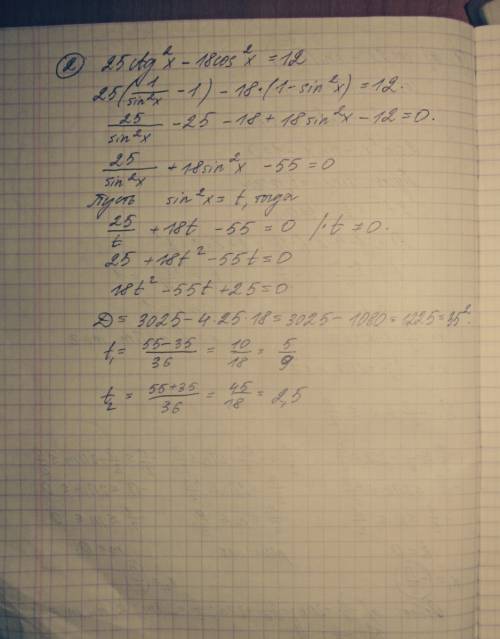 ② 25ctg²x - 18cos²x = 12
25(1/sin²x - 1) - 18·(1 - sin²x) = 12.
25/sin²x - 25 - 18 + 18sin²x - 12 = 0.
25/sin²x + 18sin²x - 55 = 0
Пусть sin²x = t, тогда
25/t + 18t - 55 = 0 /·t ≠ 0.
25 + 18t² - 55t = 0
18t² - 55t + 25 = 0
D = 3025 - 4·25·18 = 3025 - 1080 = 1225 = 35².
t₁ = (55-35)/36 = 10/18 = 5/9
t₂ = (55+35)/36 = 45/18 = 2,5